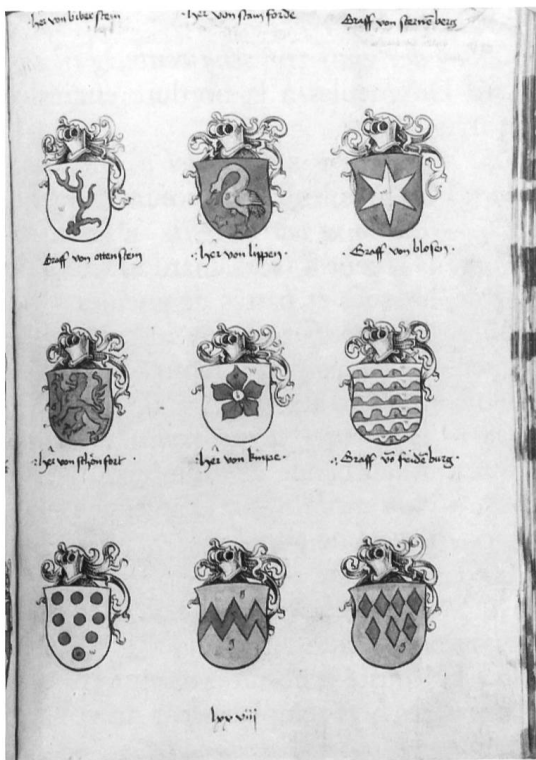 her von biberstein
her von stamforde
Graff von sternēberg
Graff von ottenstein
her von lippen
Graff von blosen
her von schonfort
her von kinpe
Graff vō freidēburg
lxxviij